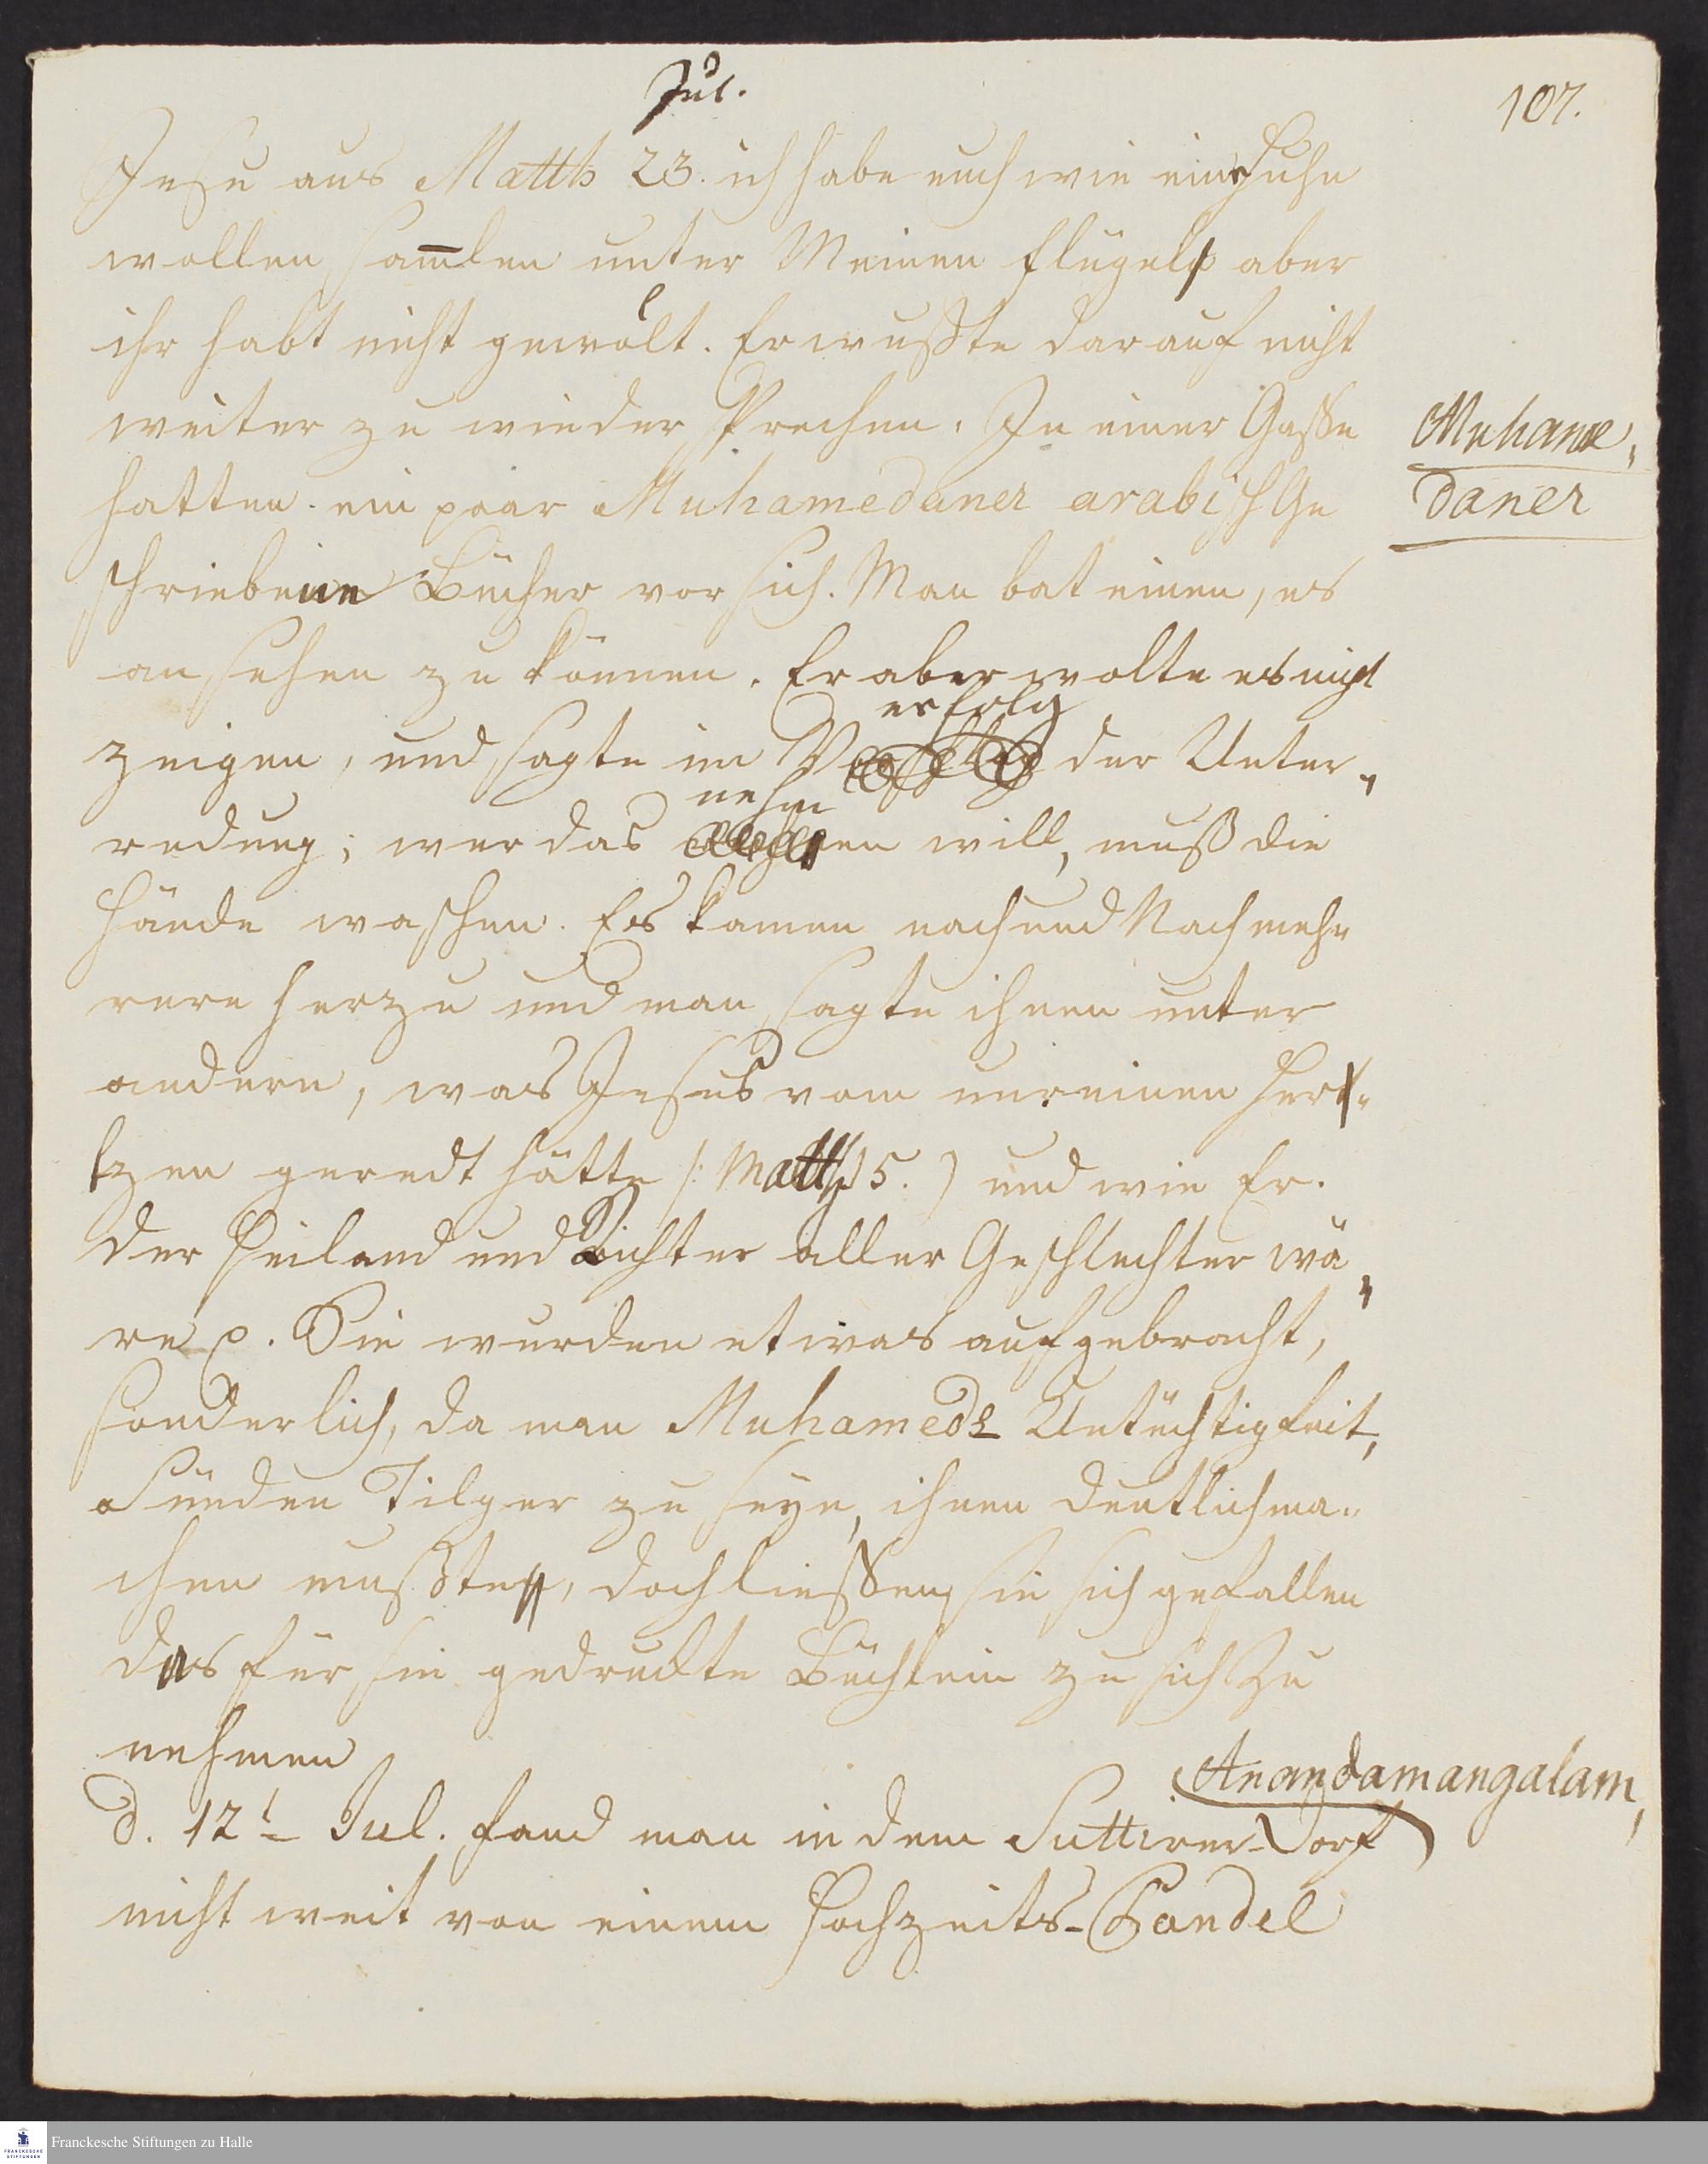 Jul.
107.
Jesu aus Matth 23. ich habe euch wie eine Huhn
wollen sam̅len unter Meinen flügeln aber
ihr habt nicht gewollt. Er wußte darauf nicht
weiter zu wieder sprechen. In einer Gasse
Muhame,
hatten ein paar Muhamedaner arabisch Ge
daner
schriebene Bücher vor sich. Man bat einen, es
an sehen zu können. Er aber wolte es nicht
erfolg
zeigen, und sagte im der Unter„
nehm
redung; wer das en will, muß die
Hände waschen. Es kamen nach und Nach meh„
rere herzu und man sagte ihnen unter
andern, was Jesus vom unreinen Her„
tzen geredt hätte /: Matth 15. ) und wie Er.
der Heiland und Richter aller Geschlechter wä„
re p. Sie wurden etwas aufgebracht,
sonderlich, da man Muhameds Untüchtigkeit,
Sünden Tilger zu seyn, ihnen deutlich ma„
chen mußte, doch ließen sie sich gefallen
das für sie gedruckte Büchlein zu sich zu
nehmen
Anandamangalam,
d. 12t Jul. fand man in dem Suttirer-Dorf
nicht weit von einem Hochzeits-Pandel
Franckesche Stiftungen zu Halle